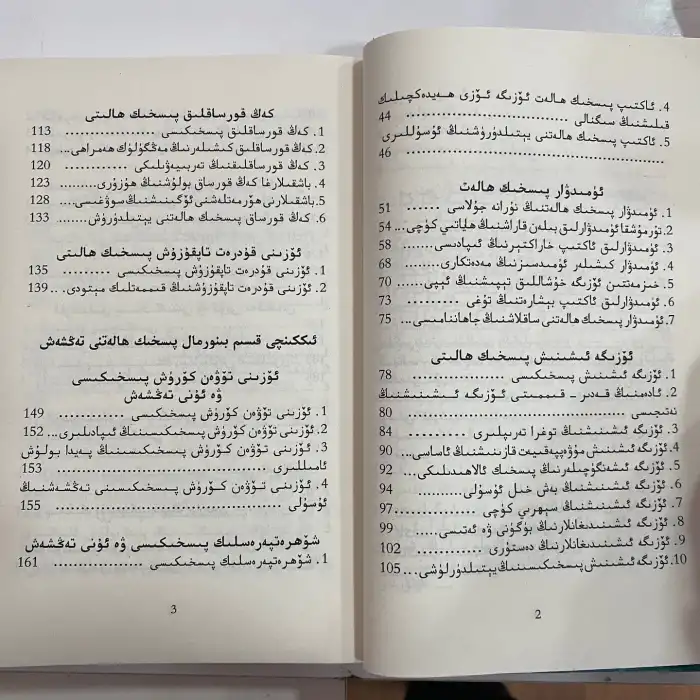 4. ئاكتىپ پىسخىك ھالەت ئۆزىگە ئۆزى ھەيدەكچىلىك
قىلىشنىڭ سىگنالى ........................ 44
5. ئاكتىپ پىسخىك ھالەتنى يېتىلدۈرۈشنىڭ ئۇسۇللىرى
........................ 46
ئۈمىدۋار پىسخىك ھالەت
1. ئۈمىدۋار پىسخىك ھالەتنىڭ نۇرانە جۇلاسى ...... 51
2. تۇرمۇشقا ئۈمىدۋارلىق بىلەن قاراشنىڭ ھاياتىي كۈچى... 54
3. ئۈمىدۋارلىق ئاكتىپ خاراكتېرنىڭ ئىپادىسى....... 58
4. ئۈمىدۋار كىشىلەر ئۈمىدسىزنىڭ مەدەتكارى........ 68
5. خىزمەتتىن ئۆزىگە خۇشاللىق تېپىشنىڭ ئېپى...... 70
6. ئۈمىدۋارلىق ئاكتىپ بېشارەتنىڭ تۇغى .......... 73
7. ئۈمىدۋار پىسخىك ھالەتنى ساقلاشنىڭ جاھاننامىسى... 75
ئۆزىگە ئىشىنىش پىسخىك ھالىتى
1. ئۆزىگە ئىشىنىش پىسخىكىسى ................ 78
2. ئادەمنىڭ قەدىر - قىممىتى ئۆزىگە ئىشىنىشنىڭ
نەتىجىسى ........................ 80
3. ئۆزىگە ئىشىنىشنىڭ توغرا تەرىپلىرى ........... 84
4. ئۆزىگە ئىشىنىش مۇۋەپپەقىيەت قازىنىشنىڭ ئاساسى... 90
5. ئۆزىگە ئىشەنگۈچىلەرنىڭ پىسخىك ئالاھىدىلىكى... 92
6. ئۆزىگە ئىشىنىشنىڭ بەش خىل ئۇسۇلى......... 94
7. ئۆزىگە ئىشىنىشنىڭ سېھرىي كۈچى ............ 97
8. ئۆزىگە ئىشىنىدىغانلارنىڭ بۈگۈنى ۋە ئەتىسى... 99
9. ئۆزىگە ئىشىنىدىغانلارنىڭ دەستۇرى ........... 102
10. ئۆزىگە ئىشىنىش پىسخىكىسىنىڭ يېتىلدۈرلۈشى... 105
2
كەڭ قورساقلىق پىسخىك ھالىتى
1. كەڭ قورساقلىق پىسخىكىسى ................ 113
2. كەڭ قورساقلىق كىشىلەرنىڭ مەڭگۈلۈك ھەمراھى... 118
3. كەڭ قورساقلىقنىڭ تەربىيەۋىلىكى ............ 120
4. باشقىلارغا كەڭ قورساق بولۇشنىڭ ھۇزۇرى......... 123
5. باشقىلارنى ھۆرمەتلەشنى ئۆگىنىشنىڭ سوۋغىسى... 128
6. كەڭ قورساق پىسخىك ھالەتنى يېتىلدۈرۈش ...... 133
ئۆزىنى قۇدرەت تاپقۇزۇش پىسخىك ھالىتى
1. ئۆزىنى قۇدرەت تاپقۇزۇش پىسخىكىسى ......... 135
2. ئۆزىنى قۇدرەت تاپقۇزۇشنىڭ قىممەتلىك مېتودى... 139
ئىككىنچى قىسىم بىنورمال پىسخىك ھالەتنى تەڭشەش
ئۆزىنى تۆۋەن كۆرۈش پىسخىكىسى
ۋە ئۇنى تەڭشەش
1. ئۆزىنى تۆۋەن كۆرۈش پىسخىكىسى ............ 149
2. ئۆزىنى تۆۋەن كۆرۈش پىسخىكىسىنىڭ ئىپادىلىرى... 152
3. ئۆزىنى تۆۋەن كۆرۈش پىسخىكىسىنىڭ پەيدا بولۇش
ئامىللىرى ........................ 153
4. ئۆزىنى تۆۋەن كۆرۈش پىسخىكىسىنى تەڭشەشنىڭ
ئۇسۇلى ........................ 155
شۆھرەتپەرەسلىك پىسخىكىسى ۋە ئۇنى تەڭشەش
1. شۆھرەتپەرەسلىك پىسخىكىسى .................. 161
3